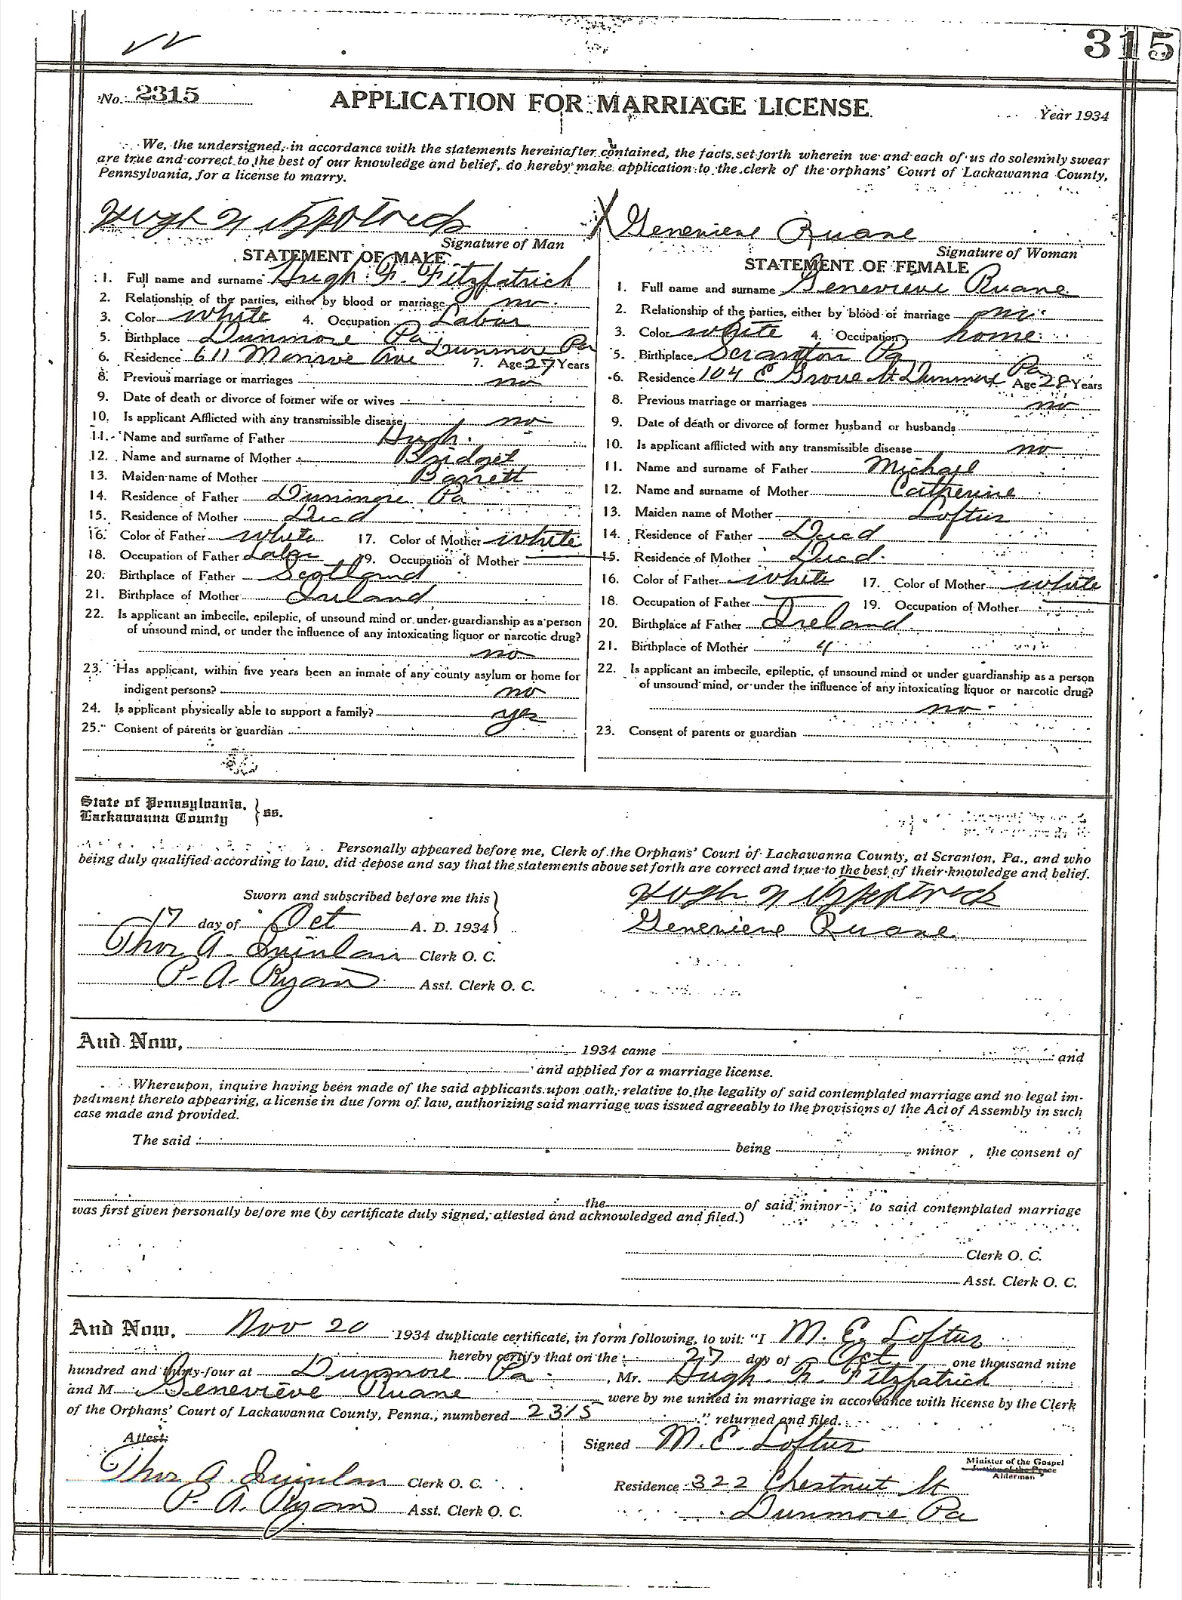 315
No. 2315 APPLICATION FOR MARRIAGE LICENSE. Year 1934
We, the undersigned, in accordance with the statements hereinafter contained, the facts set forth wherein we and each of us do solemnly swear
are true and correct to the best of our knowledge and belief, do hereby make application to the clerk of the orphans' Court of Lackawanna County,
Pennsylvania, for a license to marry.
Hugh Fitzpatrick
Signature of Man
STATEMENT OF MALE
1. Full name and surname Hugh F. Fitzpatrick
2. Relationship of the parties, either by blood or marriage no.
3. Color White 4. Occupation Labor
5. Birthplace Dunmore Pa
6. Residence 611 Monroe Ave Dunmore Pa 7. Age 27 Years
8. Previous marriage or marriages no
9. Date of death or divorce of former wife or wives
10. Is applicant Afflicted with any transmissible disease no
11. Name and surname of Father Hugh.
12. Name and surname of Mother Bridget
13. Maiden name of Mother Barrett
14. Residence of Father Dunmore Pa
15. Residence of Mother Dead
16. Color of Father White 17. Color of Mother White
18. Occupation of Father Labor 19. Occupation of Mother
20. Birthplace of Father Scotland
21. Birthplace of Mother Ireland
22. Is applicant an imbecile, epileptic, of unsound mind or under guardianship as a person
of unsound mind, or under the influence of any intoxicating liquor or narcotic drug?
no
23. Has applicant, within five years been an inmate of any county asylum or home for
indigent persons? no
24. Is applicant physically able to support a family? yes
25. Consent of parents or guardian
X Genevieve Ruane
Signature of Woman
STATEMENT OF FEMALE
1. Full name and surname Genevieve Ruane
2. Relationship of the parties, either by blood or marriage no.
3. Color White 4. Occupation home
5. Birthplace Scranton Pa
6. Residence 104 E Grove St Dunmore Pa Age 28 Years
8. Previous marriage or marriages no
9. Date of death or divorce of former husband or husbands
10. Is applicant afflicted with any transmissible disease no
11. Name and surname of Father Michael
12. Name and surname of Mother Catherine
13. Maiden name of Mother Loftus
14. Residence of Father Dead
15. Residence of Mother Dead.
16. Color of Father White 17. Color of Mother White
18. Occupation of Father 19. Occupation of Mother
20. Birthplace af Father Ireland
21. Birthplace of Mother "
22. Is applicant an imbecile, epileptic, of unsound mind or under guardianship as a person
of unsound mind, or under the influence of any intoxicating liquor or narcotic drug?
no
23. Consent of parents or guardian
State of Pennsylvania,
Lackawanna County } ss.
Personally appeared before me, Clerk of the Orphans' Court of Lackawanna County, at Scranton, Pa., and who
being duly qualified according to law, did depose and say that the statements above set forth are correct and true to the best of their knowledge and belief.
Sworn and subscribed before me this
17 day of Oct A. D. 1934
Thos A. Quinlan Clerk O. C.
P. A. Ryan Asst. Clerk O. C.
Hugh Fitzpatrick
Genevieve Ruane
And Now, 1934 came and
and applied for a marriage license.
Whereupon, inquire having been made of the said applicants upon oath, relative to the legality of said contemplated marriage and no legal im-
pediment thereto appearing, a license in due form of law, authorizing said marriage was issued agreeably to the provisions of the Act of Assembly in such
case made and provided.
The said being minor , the consent of
the of said minor , to said contemplated marriage
was first given personally before me (by certificate duly signed, attested and acknowledged and filed.)
Clerk O. C.
Asst. Clerk O. C.
And Now, Nov 20 1934 duplicate certificate, in form following, to wit: "I M. E. Loftus
hereby certify that on the 27 day of Oct one thousand nine
hundred and thirty-four at Dunmore Pa. , Mr. Hugh F. Fitzpatrick
and M Genevieve Ruane were by me united in marriage in accordance with license by the Clerk
of the Orphans' Court of Lackawanna County, Penna., numbered 2315 " returned and filed.
Attest:
Thos A. Quinlan Clerk O. C.
P. A. Ryan Asst. Clerk O. C.
Signed M. E. Loftus
Minister of the Gospel
Justice of the Peace
Alderman
Residence 322 Chestnut St
Dunmore Pa